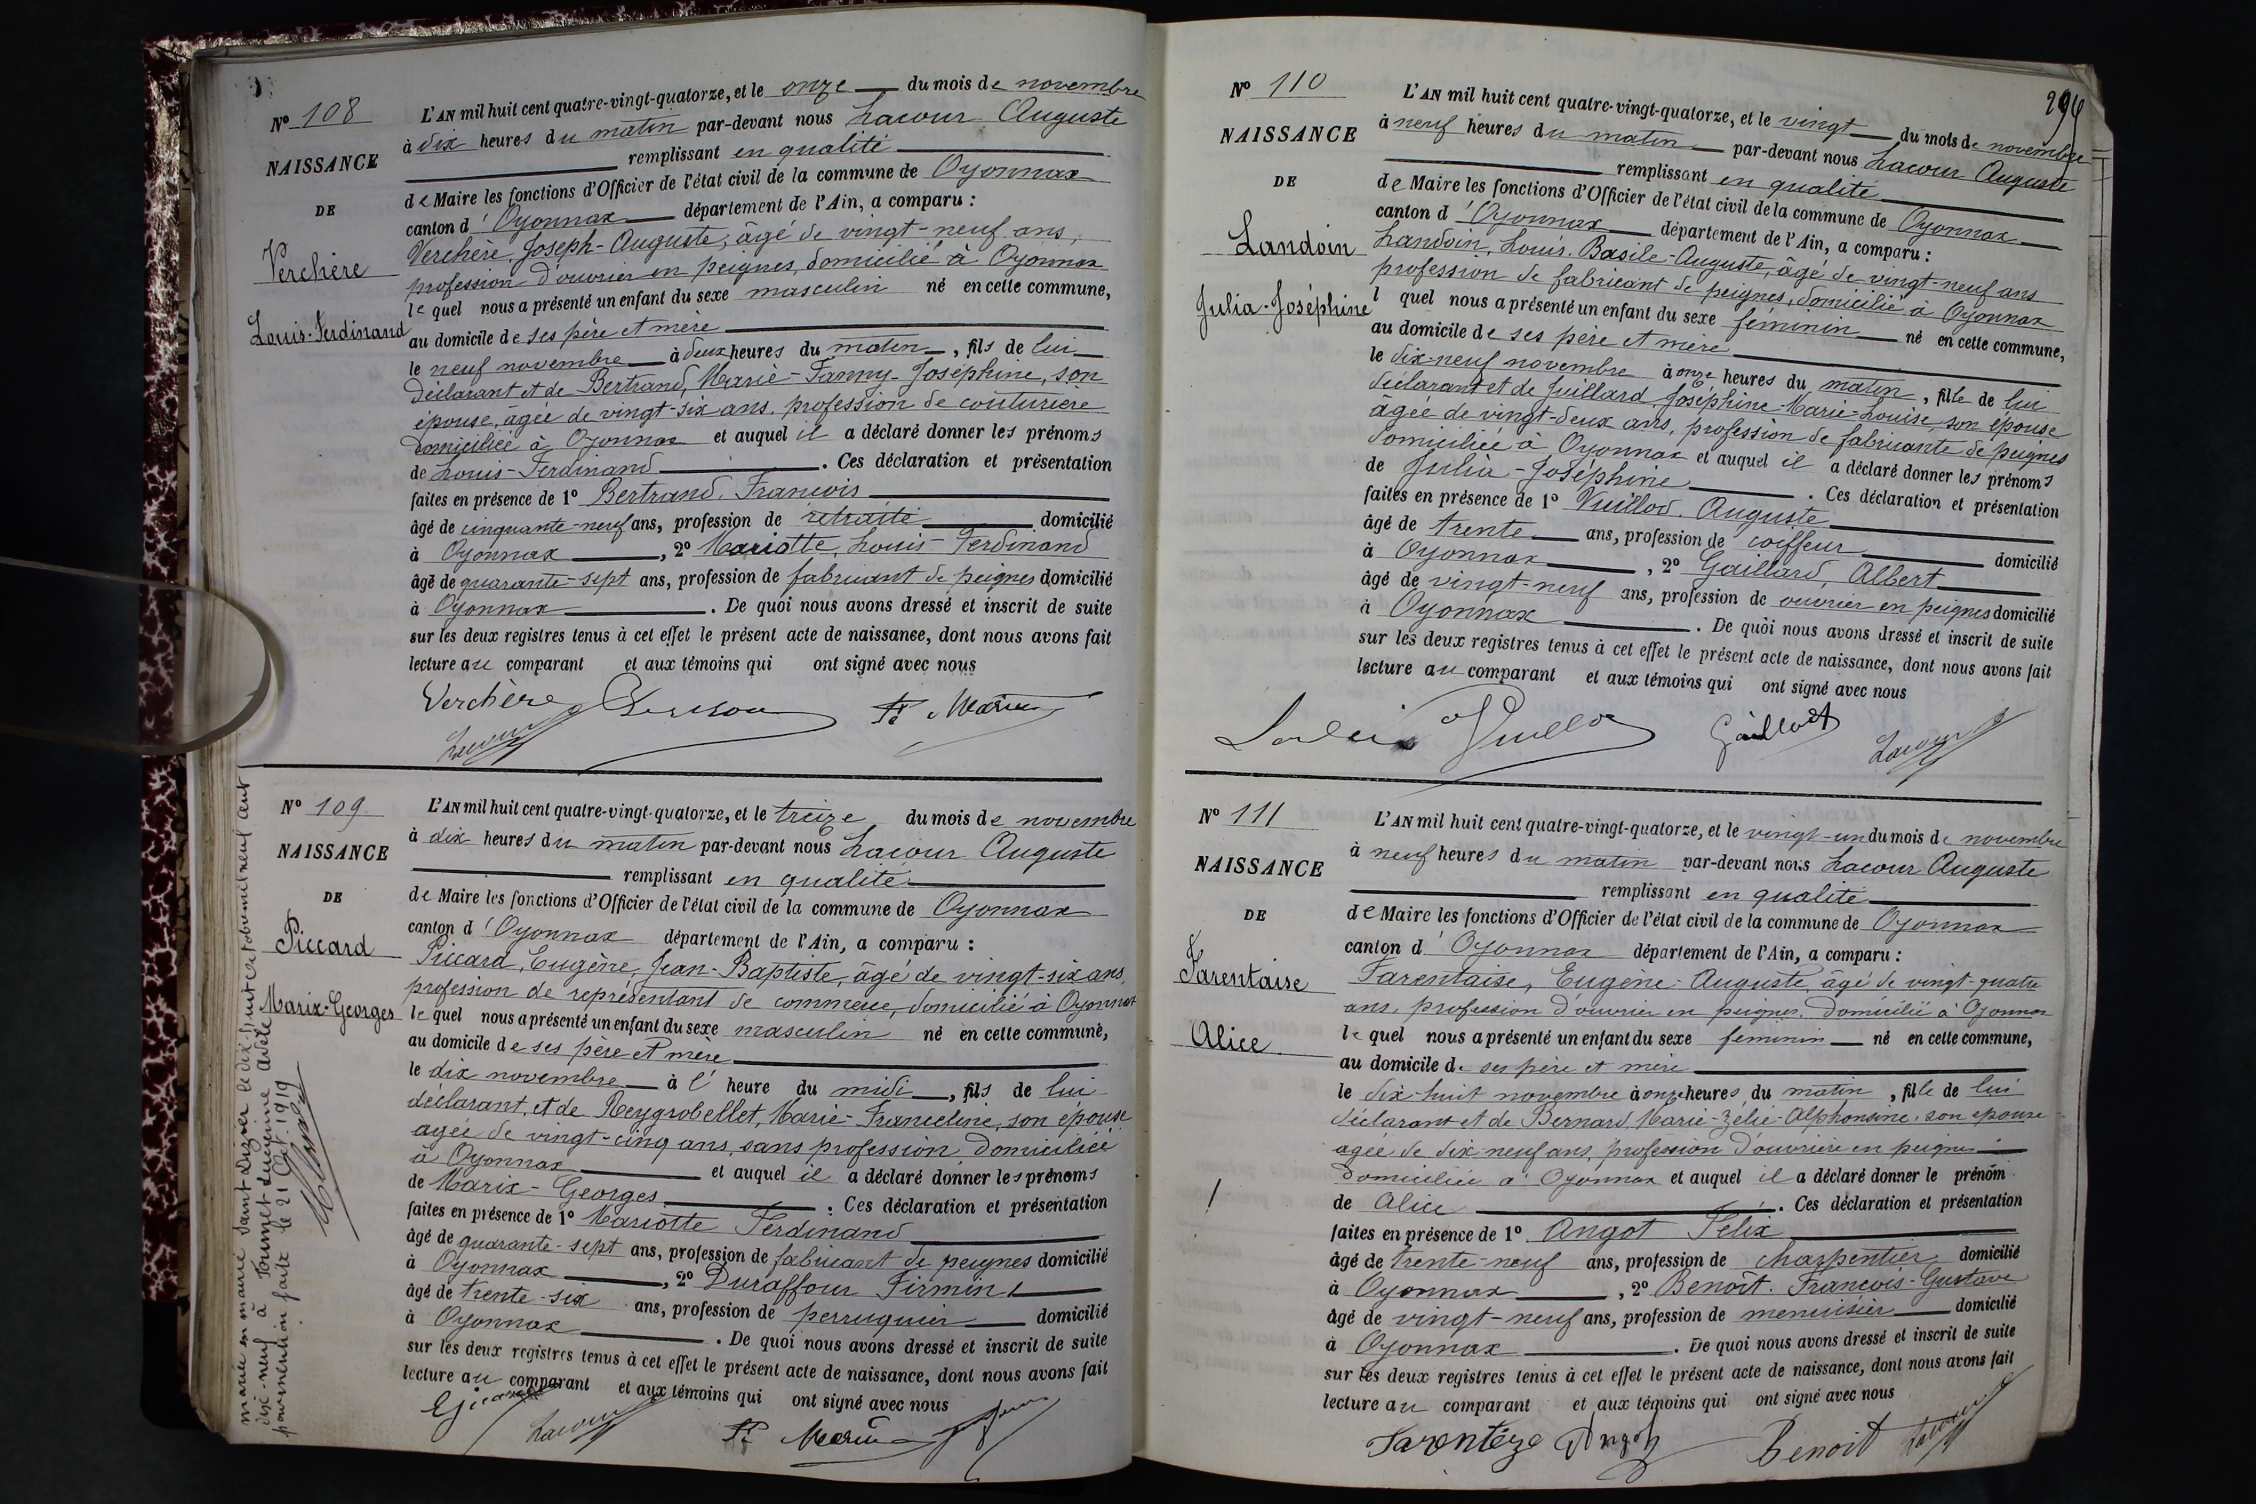 No 108
NAISSANCE
DE
Verchère
Louis-Ferdinand
L'AN mil huit cent quatre-vingt-quatorze, et le onze du mois de novembre
à dix heures du matin par-devant nous Lacour Auguste
remplissant en qualité
de Maire les fonctions d'Officier de l'état civil de la commune de Oyonnax
canton d'Oyonnax département de l'Ain, a comparu :
Verchère, Joseph-Auguste, âgé de vingt-neuf ans,
profession d'ouvrier en peignes, domicilié à Oyonnax
lequel nous a présenté un enfant du sexe masculin né en cette commune,
au domicile de ses père et mère
le neuf novembre à deux heures du matin, fils de lui
déclarant et de Bertrand, Marie-Fanny-Joséphine, son
épouse, âgée de vingt-six ans, profession de couturière
domiciliée à Oyonnax et auquel il a déclaré donner les prénoms
de Louis-Ferdinand. Ces déclaration et présentation
faites en présence de 1o Bertrand, François
âgé de cinquante-neuf ans, profession de retraité domicilié
à Oyonnax, 2o Mariotte, Louis-Ferdinand
âgé de quarante-sept ans, profession de fabricant de peignes domicilié
à Oyonnax. De quoi nous avons dressé et inscrit de suite
sur les deux registres tenus à cet effet le présent acte de naissance, dont nous avons fait
lecture au comparant et aux témoins qui ont signé avec nous
Verchère
Lacour
No 109
NAISSANCE
DE
Piccard
Marix-Georges
marié en mairie Saint Dizier le dix huit octobre mil neuf cent
dix-neuf à Tournet Eugénie Adèle
par mention faite le 21 Oct. 1919
L'AN mil huit cent quatre-vingt-quatorze, et le treize du mois de novembre
à dix heures du matin par-devant nous Lacour Auguste
remplissant en qualité
de Maire les fonctions d'Officier de l'état civil de la commune de Oyonnax
canton d'Oyonnax département de l'Ain, a comparu :
Piccard, Eugène, Jean-Baptiste, âgé de vingt-six ans,
profession de représentant de commerce, domicilié à Oyonnax
lequel nous a présenté un enfant du sexe masculin né en cette commune,
au domicile de ses père et mère
le dix novembre à l'heure du midi, fils de lui
déclarant, et de Reygrobellet, Marie-Franceline, son épouse
agée de vingt-cinq ans, sans profession domiciliée
à Oyonnax et auquel il a déclaré donner les prénoms
de Marix-Georges. Ces déclaration et présentation
faites en présence de 1o Mariotte Ferdinand
âgé de quarante-sept ans, profession de fabricant de peignes domicilié
à Oyonnax, 2o Duraffour Firmin
âgé de trente-six ans, profession de perruquier domicilié
à Oyonnax. De quoi nous avons dressé et inscrit de suite
sur les deux registres tenus à cet effet le présent acte de naissance, dont nous avons fait
lecture au comparant et aux témoins qui ont signé avec nous
Lacour
296
No 110
NAISSANCE
DE
Landoin
Julia-Joséphine
L'AN mil huit cent quatre-vingt-quatorze, et le vingt du mois de novembre
à neuf heures du matin par-devant nous Lacour Auguste
remplissant en qualité
de Maire les fonctions d'Officier de l'état civil de la commune de Oyonnax
canton d'Oyonnax département de l'Ain, a comparu :
Landoin, Louis, Basile-Auguste, âgé de vingt-neuf ans
profession de fabricant de peignes, domicilié à Oyonnax
l quel nous a présenté un enfant du sexe féminin né en cette commune,
au domicile de ses père et mère
le dix-neuf novembre à onze heures du matin, fille de lui
déclarant et de Juillard Joséphine-Marie-Louise, son épouse
âgée de vingt-deux ans, profession de fabricante de peignes
domiciliée à Oyonnax et auquel il a déclaré donner les prénoms
de Julia-Joséphine. Ces déclaration et présentation
faites en présence de 1o Vuillod, Auguste
âgé de trente ans, profession de coiffeur domicilié
à Oyonnax, 2o Gaillard, Albert
âgé de vingt-neuf ans, profession de ouvrier en peignes domicilié
à Oyonnax. De quoi nous avons dressé et inscrit de suite
sur les deux registres tenus à cet effet le présent acte de naissance, dont nous avons fait
lecture au comparant et aux témoins qui ont signé avec nous
Vuillod Gaillard Lacour
No 111
NAISSANCE
DE
Tarentaise
Alice
L'AN mil huit cent quatre-vingt-quatorze, et le vingt-un du mois de novembre
à neuf heures du matin par-devant nous Lacour Auguste
remplissant en qualité
de Maire les fonctions d'Officier de l'état civil de la commune de Oyonnax
canton d'Oyonnax département de l'Ain, a comparu :
Tarentaise, Eugène-Auguste, âgé de vingt-quatre
ans, profession d'ouvrier en peignes. Domicilié à Oyonnax
lequel nous a présenté un enfant du sexe féminin né en cette commune,
au domicile de ses père et mère
le dix-huit novembre à onze heures du matin, fille de lui
déclarant et de Bernard Marie-Zélie-Alphonsine, son épouse
agée de dix-neuf ans, profession d'ouvrière en peignes
domiciliée à Oyonnax et auquel il a déclaré donner le prénom
de Alice. Ces déclaration et présentation
faites en présence de 1o Angot Félix
âgé de trente-neuf ans, profession de charpentier domicilié
à Oyonnax, 2o Benoît. François-Gustave
âgé de vingt-neuf ans, profession de menuisier domicilié
à Oyonnax. De quoi nous avons dressé et inscrit de suite
sur les deux registres tenus à cet effet le présent acte de naissance, dont nous avons fait
lecture au comparant et aux témoins qui ont signé avec nous
Tarentèze Angot Benoit Lacour